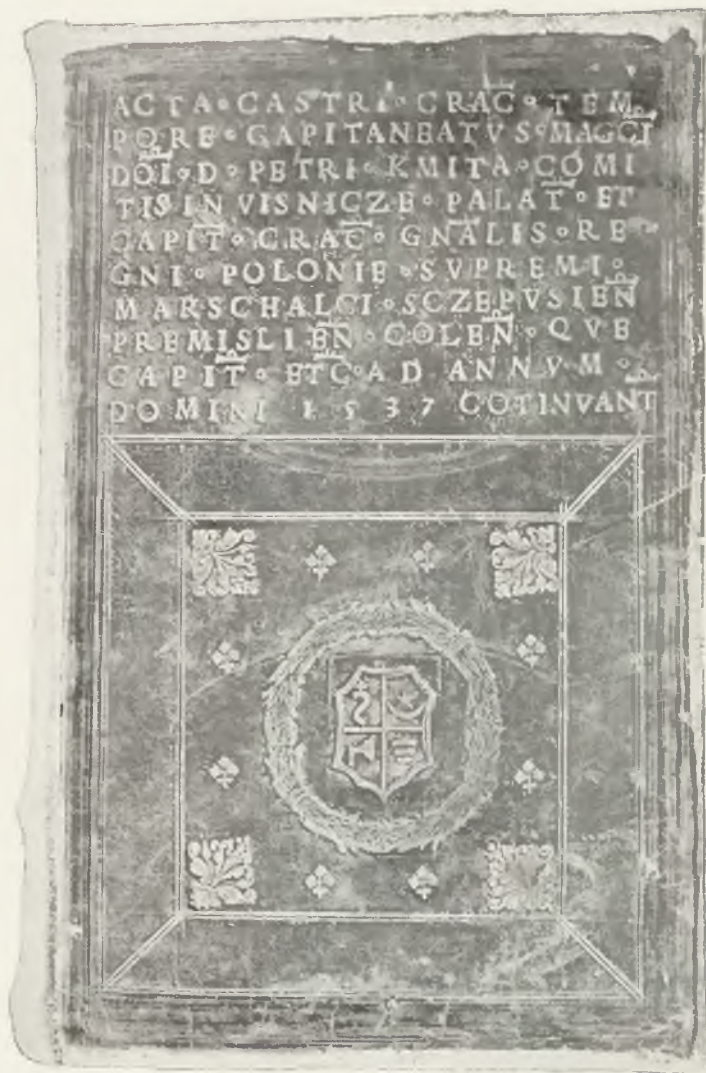 ACTA∘CASTRI∘CRAC∘TEM
PORE∘CAPITANEATVS∘MAGCI
DOI∘D∘PETRI∘KMITA∘COMI
TIS IN VISNICZE∘PALAT∘ET
CAPIT∘CRAC∘GNALIS∘RE
GNI∘POLONIE∘SVPREMI∘
MARSCHALCI∘SCZEPVSIEN
PREMISLIEN∘COLEN∘QVE
CAPIT∘ETC∘AD ANNVM∘
DOMINI 1537 COTINVANT